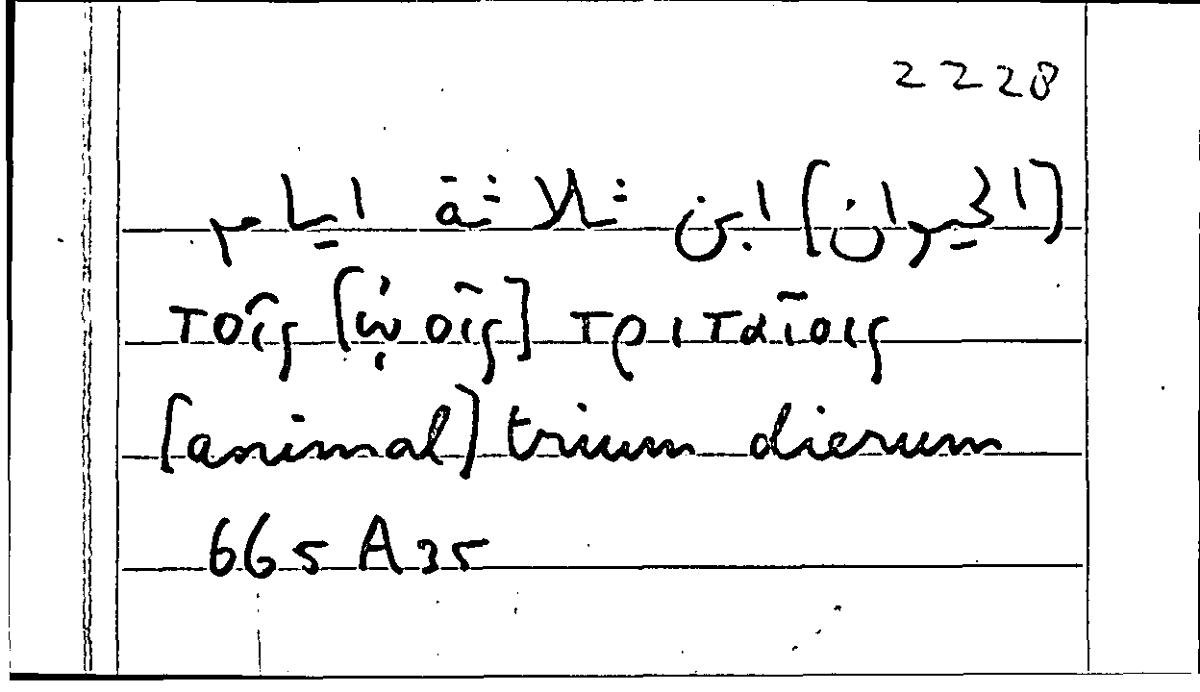 2228
[الحيوان] ابن ثلاثة ايام
τοῖς [ᾠοῖς] τριταῖοις
[animal] trium dierum
665 A35